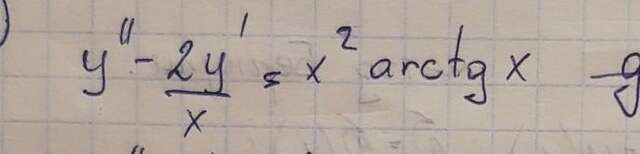 y" - 2y'/x = x² arctg x